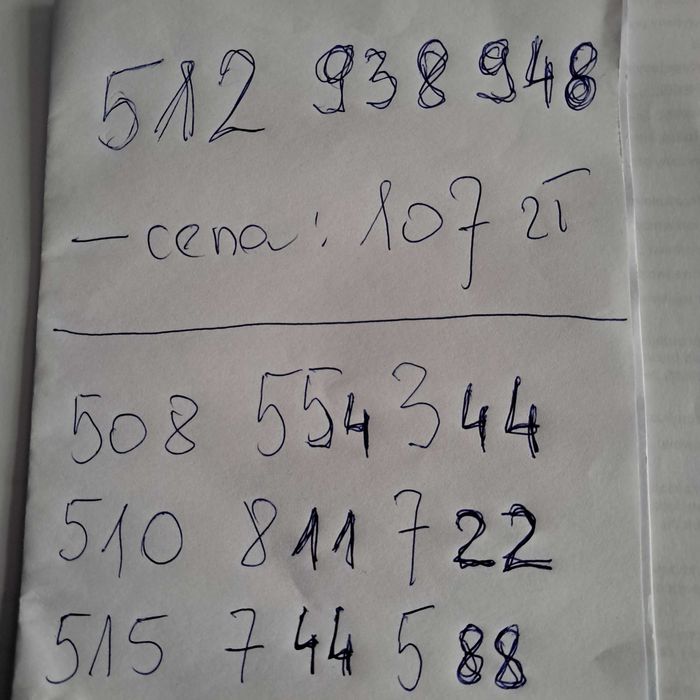 512 938 948
- cena: 107 zł
508 554 344
510 811 722
515 744 588